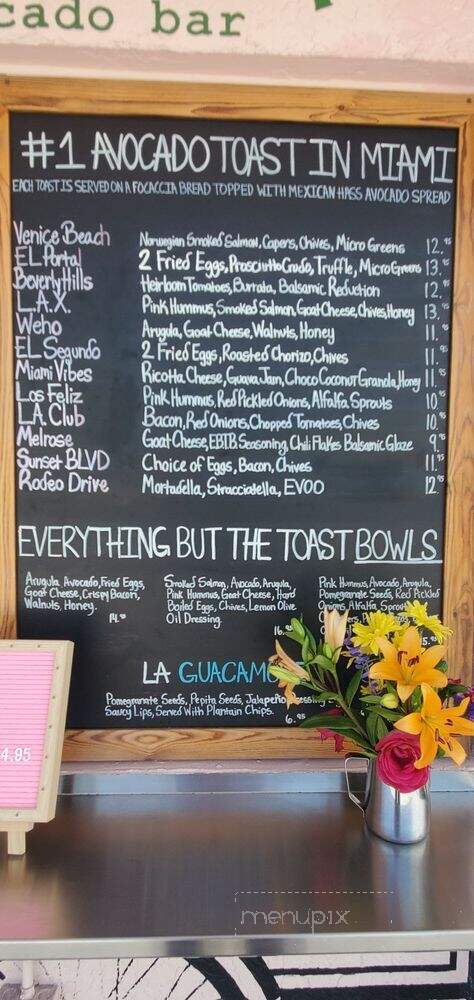 cado bar
#1 AVOCADO TOAST IN MIAMI
EACH TOAST IS SERVED ON A FOCACCIA BREAD TOPPED WITH MEXICAN HASS AVOCADO SPREAD
Venice Beach Norwegian Smoked Salmon, Capers, Chives, Micro Greens 12.95
EL Portal 2 Fried Eggs, Prosciutto Crudo, Truffle, Micro Greens 13.95
Beverly Hills Heirloom Tomatoes, Burrata, Balsamic Reduction 12.95
L.A.X. Pink Hummus, Smoked Salmon, Goat Cheese, Chives, Honey 13.95
Weho Arugula, Goat Cheese, Walnuts, Honey 11.95
EL Segundo 2 Fried Eggs, Roasted Chorizo, Chives 11.95
Miami Vibes Ricotta Cheese, Guava Jam, Choco Coconut Granola, Honey 11.95
Los Feliz Pink Hummus, Red Pickled Onions, Alfalfa Sprouts 10.95
L.A. Club Bacon, Red Onions, Chopped Tomatoes, Chives 10.95
Melrose Goat Cheese, EBTB Seasoning, Chili Flakes Balsamic Glaze 9.95
Sunset BLVD Choice of Eggs, Bacon, Chives 11.95
Rodeo Drive Mortadella, Stracciatella, EVOO 12.95
EVERYTHING BUT THE TOAST BOWLS
Arugula, Avocado, Fried Eggs,
Goat Cheese, Crispy Bacon,
Walnuts, Honey.
14.95
Smoked Salmon, Avocado, Arugula,
Pink Hummus, Goat Cheese, Hard
Boiled Eggs, Chives, Lemon Olive
Oil Dressing.
16.
Pink Hummus, Avocado, Arugula,
Pomegranate Seeds, Red Pickled
Onions, Alfalfa Sprouts
15.95
LA GUACAMO
Pomegranate Seeds, Pepita Seeds, Jalapeño
Saucy Lips, Served With Plantain Chips. 6.95
4.95
menupix